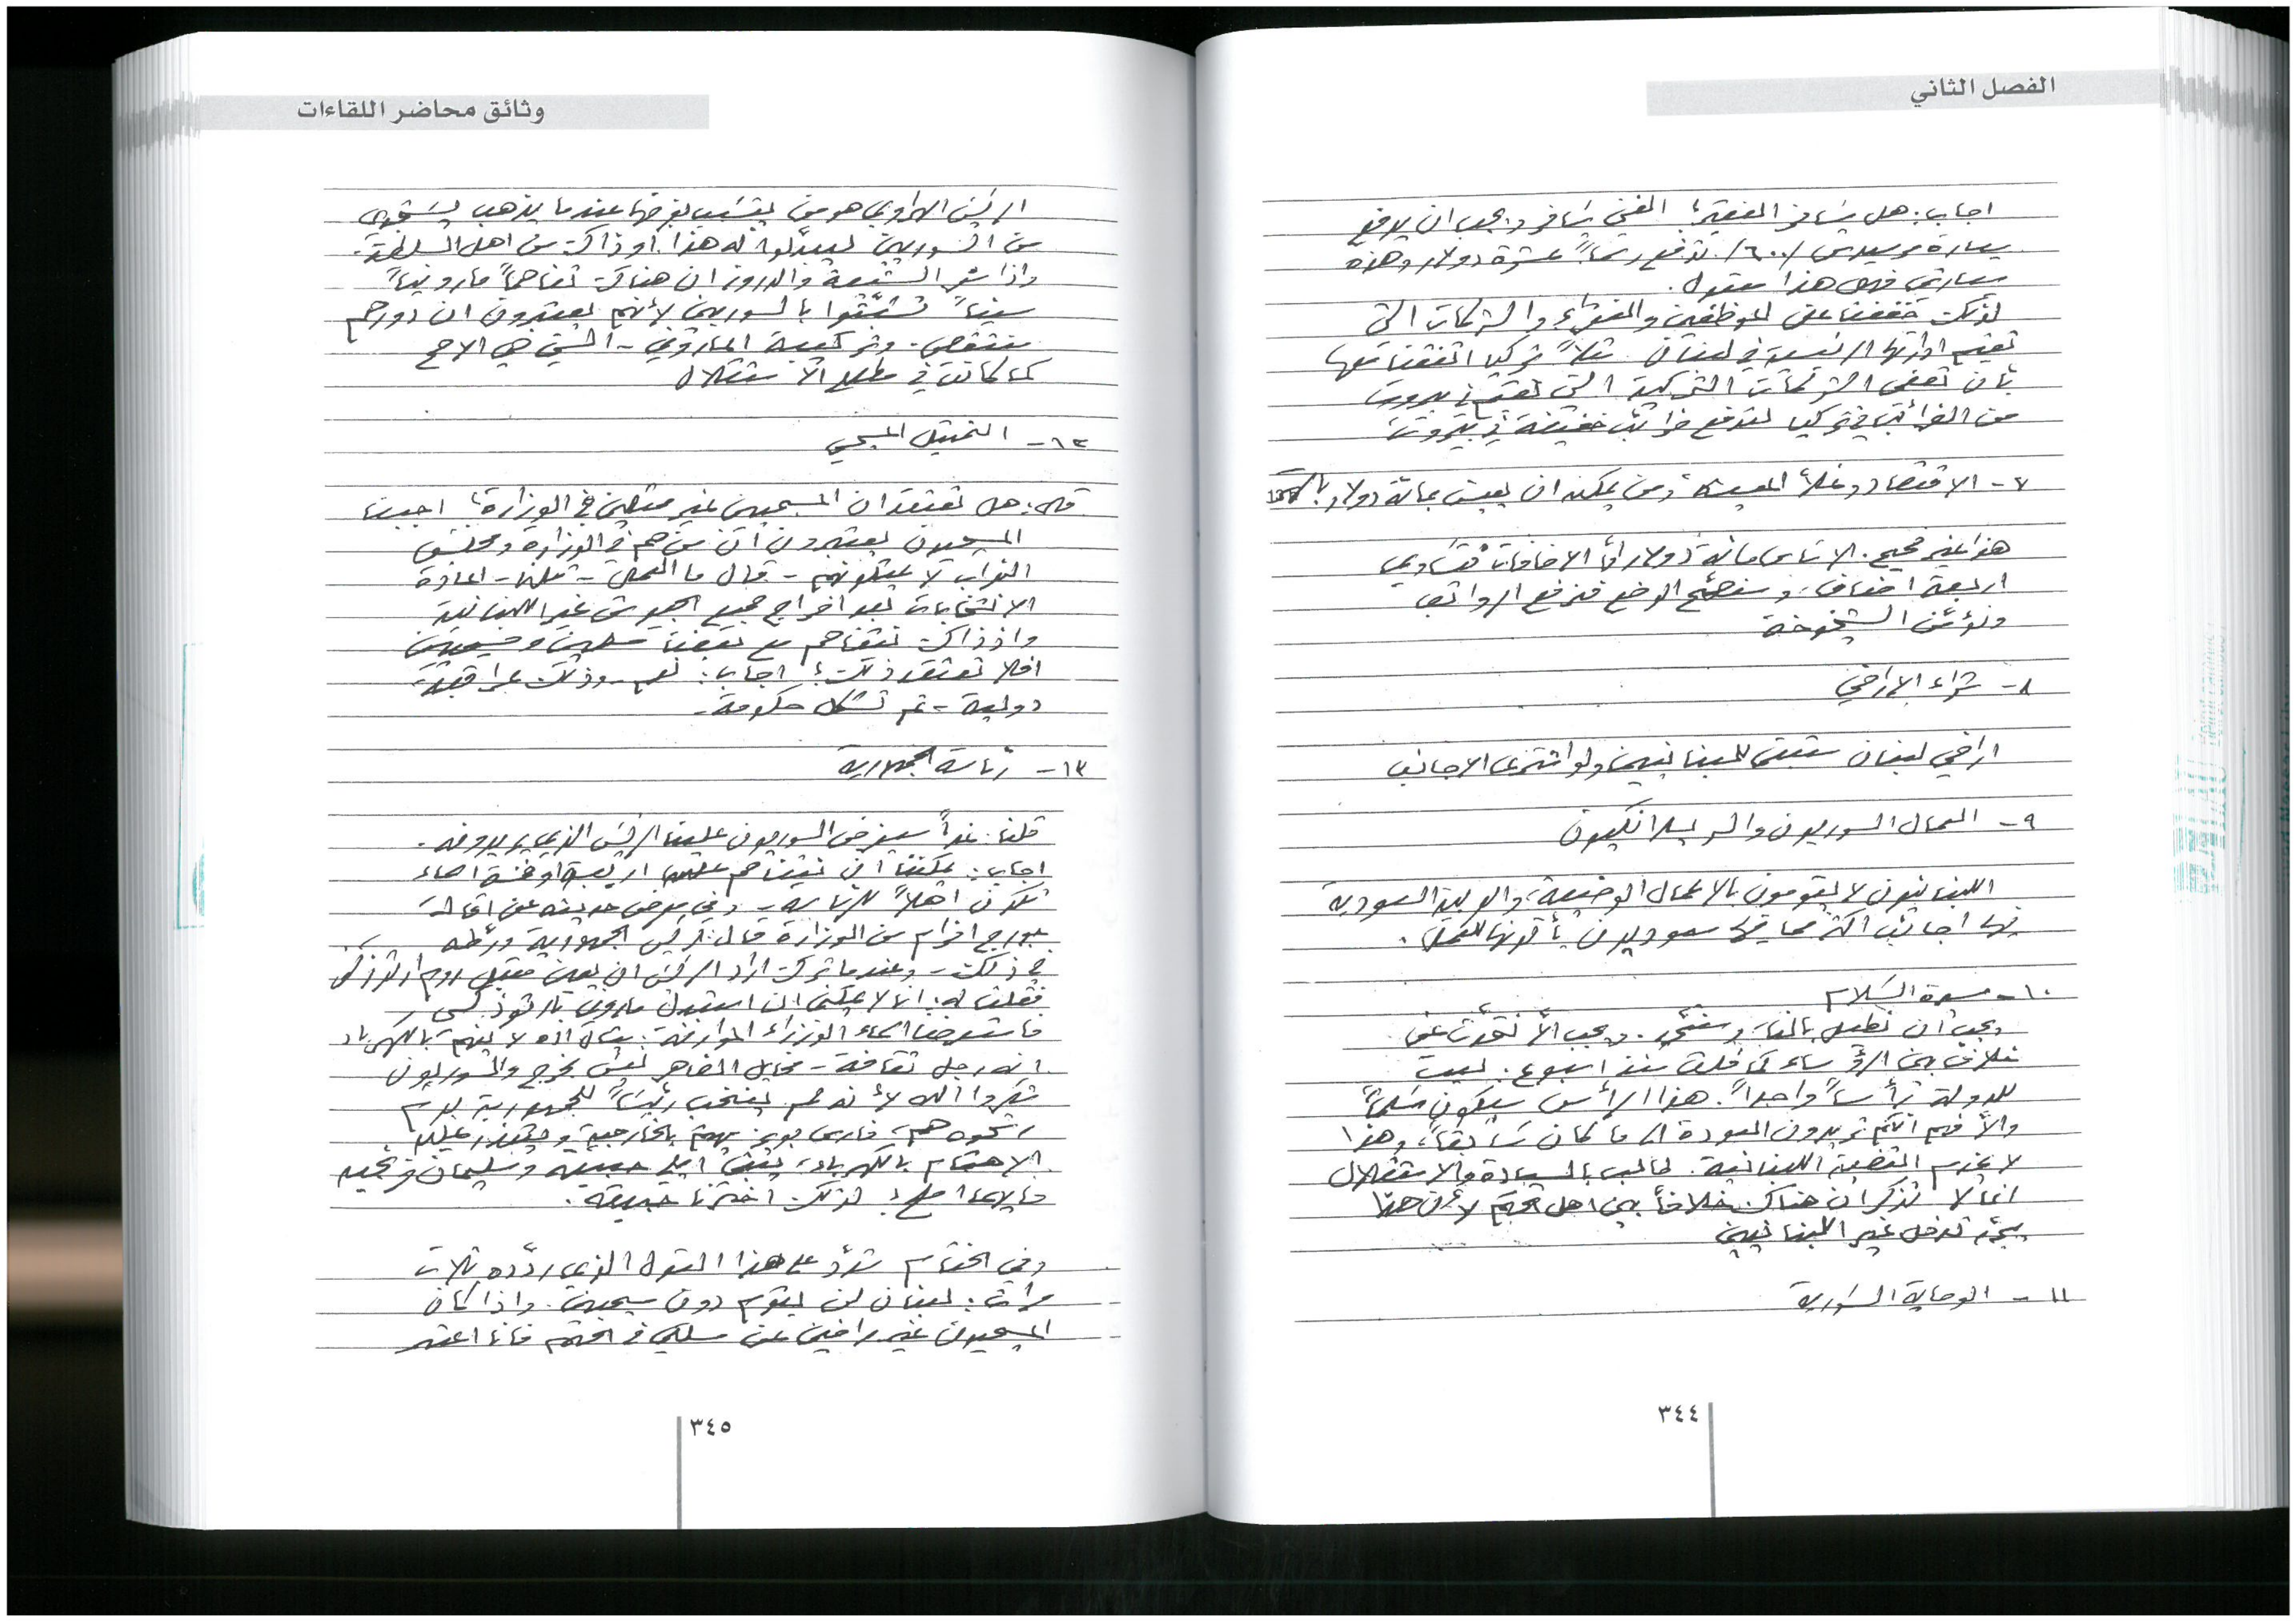 الفصل الثاني
اجاب: هل يسافر الفقير؟ الغني يسافر ويجب ان يدفع
سيارة مرسيدس /٦٠٠/ تدفع رسماً عشرة دولار وهذه
سيارتي فهل هذا معقول.
لذلك خففنا على الموظفين والفقراء والشركات التي
تقيم ادارتها الرئيسية في لبنان. مثلاً تركيا اتفقنا معها
بأن تعفي الشركات التركية التي تقيم في بيروت
من الضرائب في تركيا لتدفع ضرائب خفيفة في بيروت
٧- الاقتصاد وغلاء المعيشة ومن يمكنه ان يعيش بمائة دولار
هذا غير صحيح. الاساس مائة دولار أما الاضافات فتساوي
اربعة اضعاف، وسنصحح الوضع فنرفع الرواتب
ونؤمّن الشيخوخة
٨- شراء الاراضي
اراضي لبنان ستبقى للبنانيين ولو اشترى الاجانب
٩- العمال السوريون والسريلانكيون
اللبنانيون لا يقومون بالاعمال الوضيعة، والعربية السعودية
فيها اجانب اكثر مما فيها سعوديون يأتونها للعمل.
١٠- مسيرة السلام
يجب أن نطيل بالنا، وسننجح. ويجب ألاّ نتحدّث عن
خلاف بين الرؤساء كما قلت منذ اسبوع. ليست
للدولة رأساً واحداً. هذا الرأس سيكون مسلماً
والاّ فهم انكم تريدون العودة الى ما كان سابقاً، وهذا
لا يخدم القضية اللبنانية. طالب بالسيادة والاستقلال
انما لا تذكر ان هناك خلافاً بين اهل الحكم لأن هذا
يبرّر تدخل غير اللبنانيين
١١- الوصاية السورية
٣٤٤
وثائق محاضر اللقاءات
الرئيس الهراوي هو من يتسبب بفرضها عندما يذهب يستقوي
من السوريين ليبدّلوا له هذا او ذاك من اهل السلطة.
واذا شعر الشيعة والدروز ان هناك تفاهماً مارونياً
سنياً تشبّثوا بالسوريين لأنهم يعتبرون ان دورهم
ينتقص. وتركيبة الماروني - السني هي الاصح
كما كانت في مطلع الاستقلال
١٢- التمثيل المسيحي
قال: هل تعتقد ان المسيحيين غير ممثلين في الوزارة؟ اجبنا
المسيحيون يعتبرون ان من هم في الوزارة ومجلس
النواب لا يمثلونهم - قال ما العمل - قلنا - اعادة
الانتخابات بعد اخراج جميع الجيوش غير اللبنانية
واذ ذاك نتفاهم مع بعضنا مسلمين ومسيحيين
افلا تعتقد ذلك؟ اجاب: نعم - وذلك بمراقبة
دولية - ثم تشكل حكومة.
١٣- رئاسة الجمهورية
قلنا: غداً سيفرض السوريون علينا الرئيس الذي يريدونه.
اجاب: يمكننا أن نتفاهم على اربعة او خمسة اسماء
تكون اهلاً للرئاسة - وفي معرض حديثه عن اقالة
جورج افرام من الوزارة قال: رئيس الجمهورية ورّطه
في ذلك - وعندما ترك اراد الرئيس ان يعين مقبل روم ارثوذكس
فقلت له: انا لا يمكنني ان استبدل ماروني بأرثوذكسي
فاستعرضنا اسماء الوزراء الموارنة: ميشال اده لا يفهم بالكهرباء
انه رجل ثقافة - مخايل الضاهر ليس يخرج والسوريون
شكروا الله لأنه لم ينتخب رئيساً للجمهورية يوم
رشحوه هم، فارس بويز يهتم بالخارجية ويتعذر عليه
الاهتمام بالكهرباء، يبقى ايلي حبيقة وسليمان فرنجيه
فأيهما اصلح؟ لذلك اخترنا حبيقة.
وفي الختام شدّد على هذا القول الذي ردّده ثلاث
مرات: لبنان لن يقوم دون مسيحيين. واذا كان
المسيحيون غير راضين عن مسلكي في الحكم فأنا اعتبر
٣٤٥